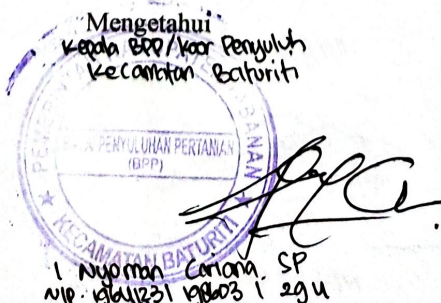 Mengetahui
Kepala BPP/Koor Penyuluh
Kecamatan Baturiti
PEMERINTAH TABANAN
PENYULUHAN PERTANIAN
(BPP)
KECAMATAN BATURITI
I Nyoman SP
NIP. 19641231 198603 1 294